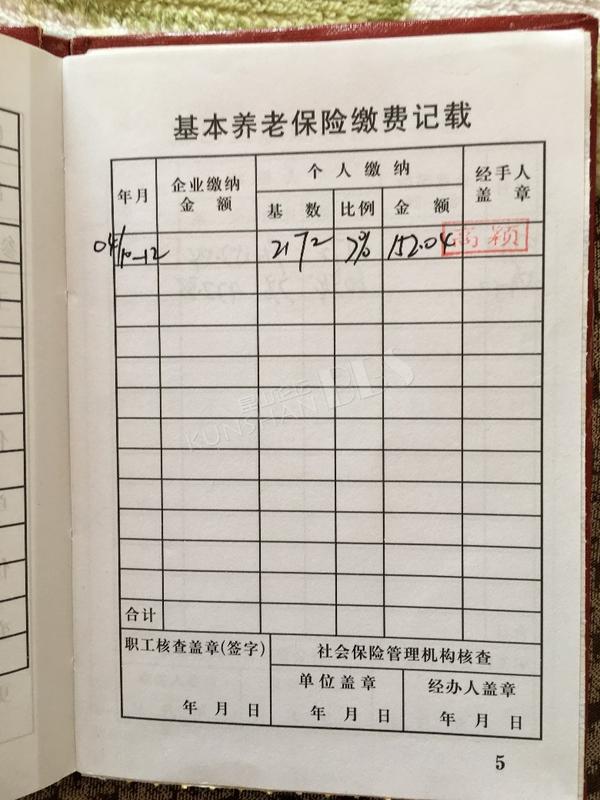 基本养老保险缴费记载
年月 企业缴纳金额 个人缴纳 经手人盖章
基数 比例 金额
04/10-12 2172 7% 152.04 高颖
合计
职工核查盖章(签字) 社会保险管理机构核查
单位盖章 经办人盖章
年 月 日 年 月 日 年 月 日
5
昆山
KUNSHAN BLS